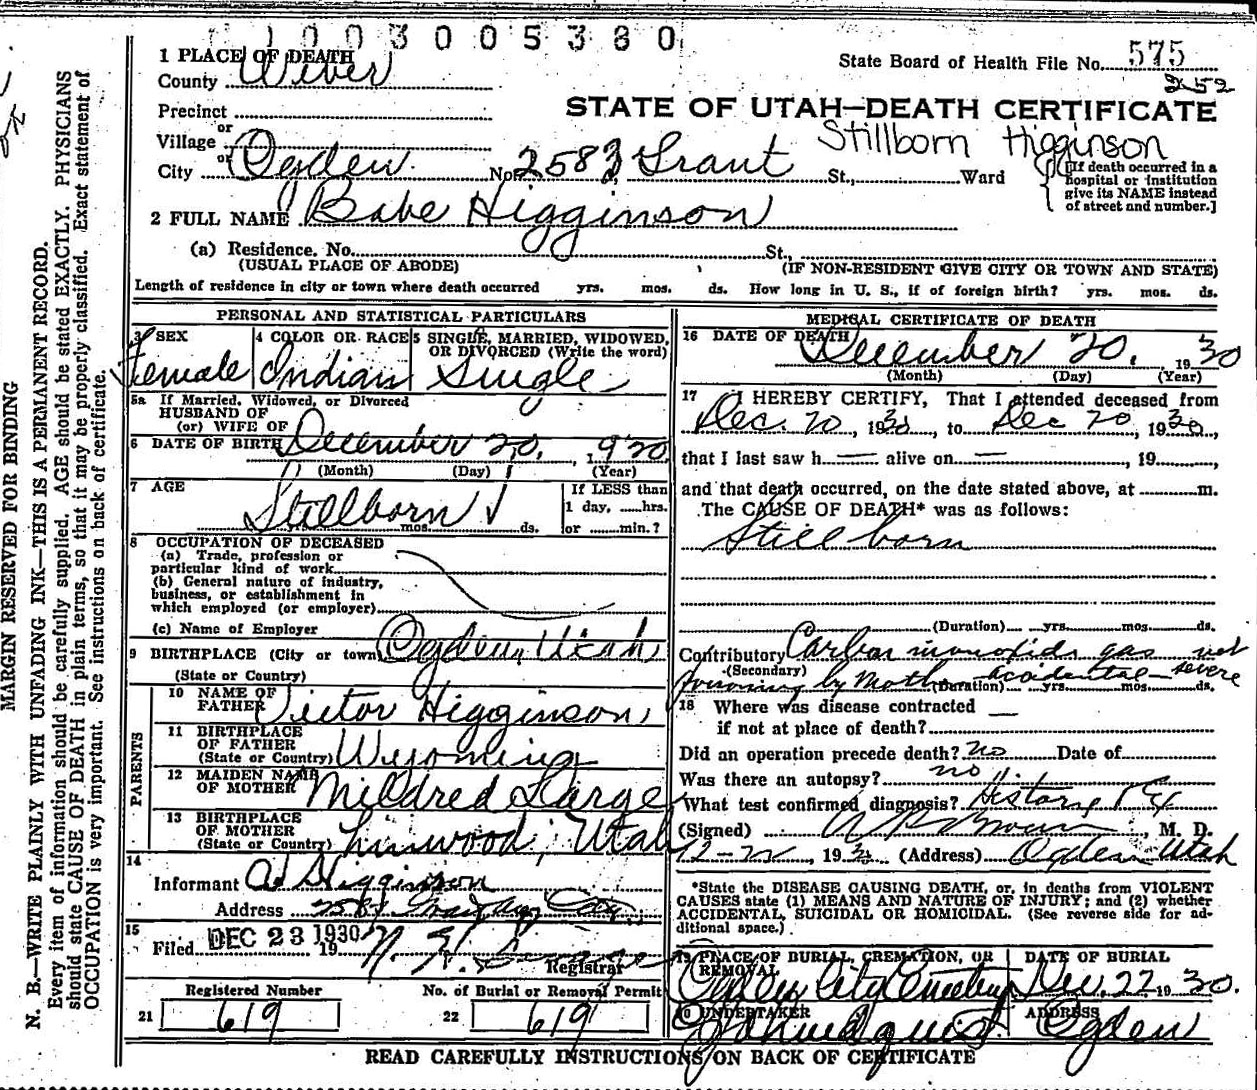 1003005380
1 PLACE OF DEATH
County Weber
State Board of Health File No. 575
252
Precinct
STATE OF UTAH—DEATH CERTIFICATE
or
Village
Stillborn Higginson
or
City Ogden No. 2583 Grant St., Ward
[If death occurred in a
hospital or institution
give its NAME instead
of street and number.]
2 FULL NAME Babe Higginson
(a) Residence. No. St.,
(USUAL PLACE OF ABODE) (IF NON-RESIDENT GIVE CITY OR TOWN AND STATE)
Length of residence in city or town where death occurred yrs. mos. ds. How long in U. S., if of foreign birth? yrs. mos. ds.
PERSONAL AND STATISTICAL PARTICULARS
3 SEX
Female
4 COLOR OR RACE
Indian
5 SINGLE, MARRIED, WIDOWED,
OR DIVORCED (Write the word)
Single
5a If Married, Widowed, or Divorced
HUSBAND OF
(or) WIFE OF
6 DATE OF BIRTH December 20, 1920
(Month) (Day) (Year)
7 AGE
Stillborn
mos. ds.
If LESS than
1 day, hrs.
or min.?
8 OCCUPATION OF DECEASED
(a) Trade, profession or
particular kind of work
(b) General nature of industry,
business, or establishment in
which employed (or employer)
(c) Name of Employer
9 BIRTHPLACE (City or town) Ogden, Utah
(State or Country)
PARENTS
10 NAME OF
FATHER Victor Higginson
11 BIRTHPLACE
OF FATHER
(State or Country) Wyoming
12 MAIDEN NAME
OF MOTHER Mildred Large
13 BIRTHPLACE
OF MOTHER
(State or Country) Linwood, Utah
14
Informant Higginson
Address
15
Filed DEC 23 1930 19
Registrar
Registered Number
21 619
No. of Burial or Removal Permit
22 619
MEDICAL CERTIFICATE OF DEATH
16 DATE OF DEATH
December 20, 1930
(Month) (Day) (Year)
17 I HEREBY CERTIFY, That I attended deceased from
Dec. 20, 1930, to Dec 20, 1930,
that I last saw h — alive on — , 19 ,
and that death occurred, on the date stated above, at m.
The CAUSE OF DEATH* was as follows:
Stillborn
(Duration) yrs. mos. ds.
Contributory Carbon monoxide gas
(Secondary)
poisoning by Mother accidental — severe
(Duration) yrs. mos. ds.
18 Where was disease contracted
if not at place of death? —
Did an operation precede death? no Date of
Was there an autopsy? no
What test confirmed diagnosis? History
(Signed) , M. D.
12-22, 1930 (Address) Ogden Utah
*State the DISEASE CAUSING DEATH, or, in deaths from VIOLENT
CAUSES state (1) MEANS AND NATURE OF INJURY; and (2) whether
ACCIDENTAL, SUICIDAL OR HOMICIDAL. (See reverse side for ad-
ditional space.)
19 PLACE OF BURIAL, CREMATION, OR
REMOVAL
Ogden City Cemetery
DATE OF BURIAL
Dec. 22 1930.
20 UNDERTAKER
ADDRESS
Ogden
READ CAREFULLY INSTRUCTIONS ON BACK OF CERTIFICATE
MARGIN RESERVED FOR BINDING
N. B.—WRITE PLAINLY WITH UNFADING INK—THIS IS A PERMANENT RECORD.
Every item of information should be carefully supplied. AGE should be stated EXACTLY. PHYSICIANS
should state CAUSE OF DEATH in plain terms, so that it may be properly classified. Exact statement of
OCCUPATION is very important. See instructions on back of certificate.